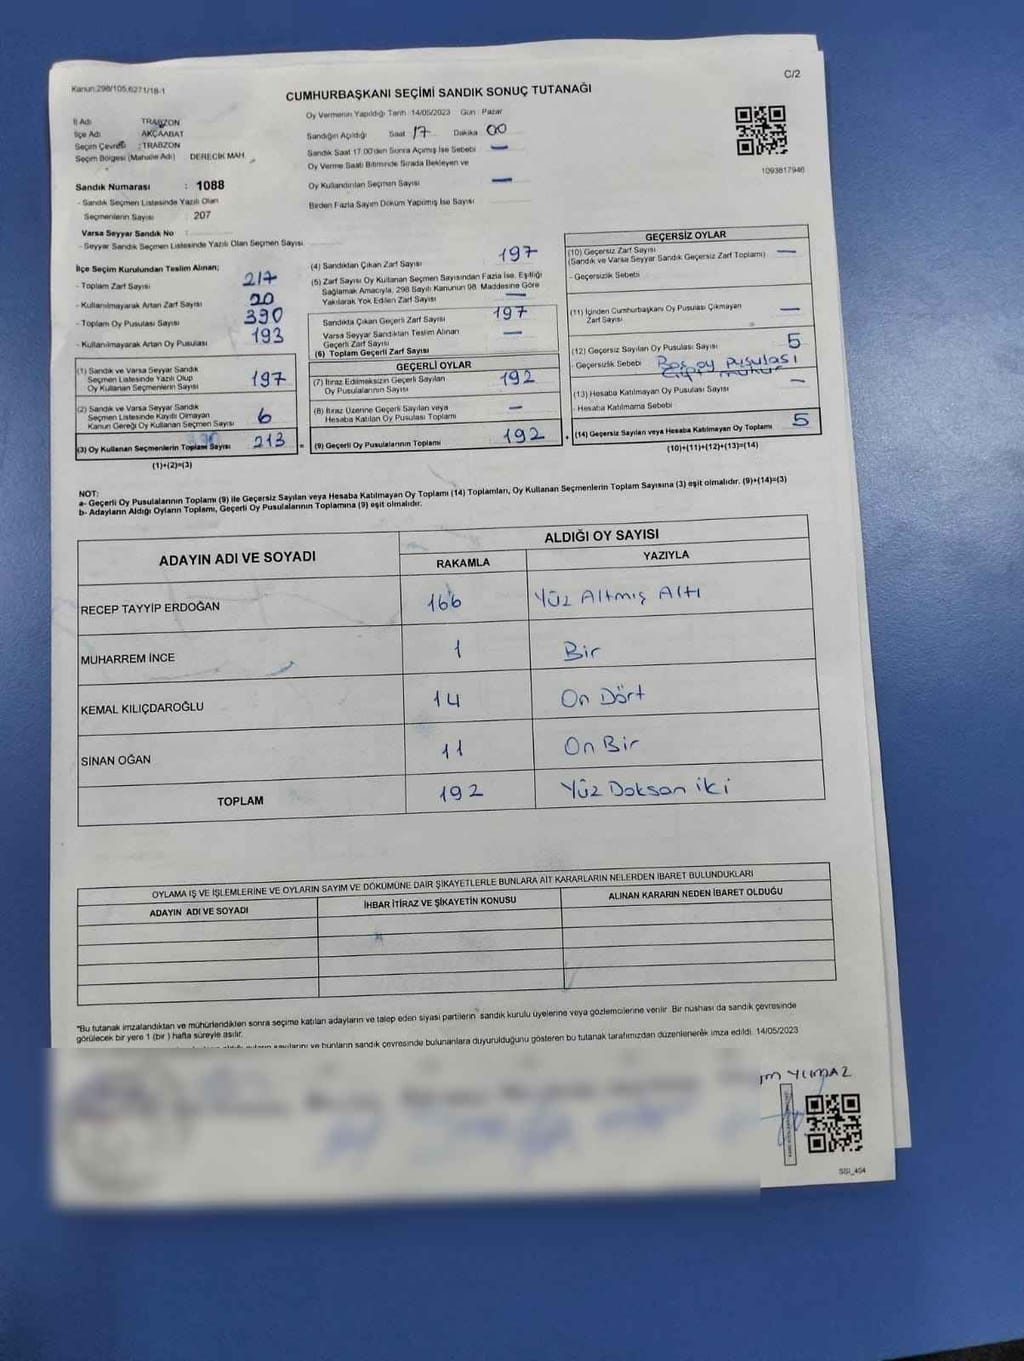 Kanun:298/105,6271/18-1
C/2
CUMHURBAŞKANI SEÇİMİ SANDIK SONUÇ TUTANAĞI
İl Adı : TRABZON
İlçe Adı : AKÇAABAT
Seçim Çevresi : TRABZON
Seçim Bölgesi (Mahalle Adı) DERECİK MAH
Sandık Numarası : 1088
- Sandık Seçmen Listesinde Yazılı Olan
Seçmenlerin Sayısı : 207
Varsa Seyyar Sandık No :
- Seyyar Sandık Seçmen Listesinde Yazılı Olan Seçmen Sayısı
Oy Vermenin Yapıldığı Tarih 14/05/2023 Gün Pazar
Sandığın Açıldığı Saat 17 Dakika 00
Sandık Saat 17.00'den Sonra Açılmış İse Sebebi —
Oy Verme Saati Bitiminde Sırada Bekleyen ve
Oy Kullandırılan Seçmen Sayısı —
Birden Fazla Sayım Döküm Yapılmış İse Sayısı
1093817946
İlçe Seçim Kurulundan Teslim Alınan;
- Toplam Zarf Sayısı 217
- Kullanılmayarak Artan Zarf Sayısı 20
- Toplam Oy Pusulası Sayısı 390
- Kullanılmayarak Artan Oy Pusulası 193
(1) Sandık ve Varsa Seyyar Sandık
Seçmen Listesinde Yazılı Olup
Oy Kullanan Seçmenlerin Sayısı 197
(2) Sandık ve Varsa Seyyar Sandık
Seçmen Listesinde Kaydı Olmayan
Kanun Gereği Oy Kullanan Seçmen Sayısı 6
(3) Oy Kullanan Seçmenlerin Toplam Sayısı 213
(1)+(2)=(3)
(4) Sandıktan Çıkan Zarf Sayısı 197
(5) Zarf Sayısı Oy Kullanan Seçmen Sayısından Fazla İse, Eşitliği
Sağlamak Amacıyla, 298 Sayılı Kanunun 98. Maddesine Göre
Yakılarak Yok Edilen Zarf Sayısı —
Sandıkta Çıkan Geçerli Zarf Sayısı 197
Varsa Seyyar Sandıktan Teslim Alınan
Geçerli Zarf Sayısı —
(6) Toplam Geçerli Zarf Sayısı
GEÇERLİ OYLAR
(7) İtiraz Edilmeksizin Geçerli Sayılan
Oy Pusulalarının Sayısı 192
(8) İtiraz Üzerine Geçerli Sayılan veya
Hesaba Katılan Oy Pusulası Toplamı —
(9) Geçerli Oy Pusulalarının Toplamı 192
GEÇERSİZ OYLAR
(10) Geçersiz Zarf Sayısı
(Sandık ve Varsa Seyyar Sandık Geçersiz Zarf Toplamı) —
- Geçersizlik Sebebi
(11) İçinden Cumhurbaşkanı Oy Pusulası Çıkmayan
Zarf Sayısı —
(12) Geçersiz Sayılan Oy Pusulası Sayısı 5
- Geçersizlik Sebebi Boş oy pusulası
mühür
(13) Hesaba Katılmayan Oy Pusulası Sayısı —
- Hesaba Katılmama Sebebi
(14) Geçersiz Sayılan veya Hesaba Katılmayan Oy Toplamı 5
(10)+(11)+(12)+(13)=(14)
NOT:
a- Geçerli Oy Pusulalarının Toplamı (9) ile Geçersiz Sayılan veya Hesaba Katılmayan Oy Toplamı (14) Toplamları, Oy Kullanan Seçmenlerin Toplam Sayısına (3) eşit olmalıdır. (9)+(14)=(3)
b- Adayların Aldığı Oyların Toplamı, Geçerli Oy Pusulalarının Toplamına (9) eşit olmalıdır.
ADAYIN ADI VE SOYADI ALDIĞI OY SAYISI
RAKAMLA YAZIYLA
RECEP TAYYİP ERDOĞAN 166 Yüz Altmış Altı
MUHARREM İNCE 1 Bir
KEMAL KILIÇDAROĞLU 14 On Dört
SİNAN OĞAN 11 On Bir
TOPLAM 192 Yüz Doksan iki
OYLAMA İŞ VE İŞLEMLERİNE VE OYLARIN SAYIM VE DÖKÜMÜNE DAİR ŞİKAYETLERLE BUNLARA AİT KARARLARIN NELERDEN İBARET BULUNDUKLARI
ADAYIN ADI VE SOYADI İHBAR İTİRAZ VE ŞİKAYETİN KONUSU ALINAN KARARIN NEDEN İBARET OLDUĞU
*Bu tutanak imzalandıktan ve mühürlendikten sonra seçime katılan adayların ve talep eden siyasi partilerin sandık kurulu üyelerine veya gözlemcilerine verilir. Bir nüshası da sandık çevresinde
görülecek bir yere 1 (bir ) hafta süreyle asılır.
sayılarını ve bunların sandık çevresinde bulunanlara duyurulduğunu gösteren bu tutanak tarafımızdan düzenlenerek imza edildi. 14/05/2023
YILMAZ
SSI_404